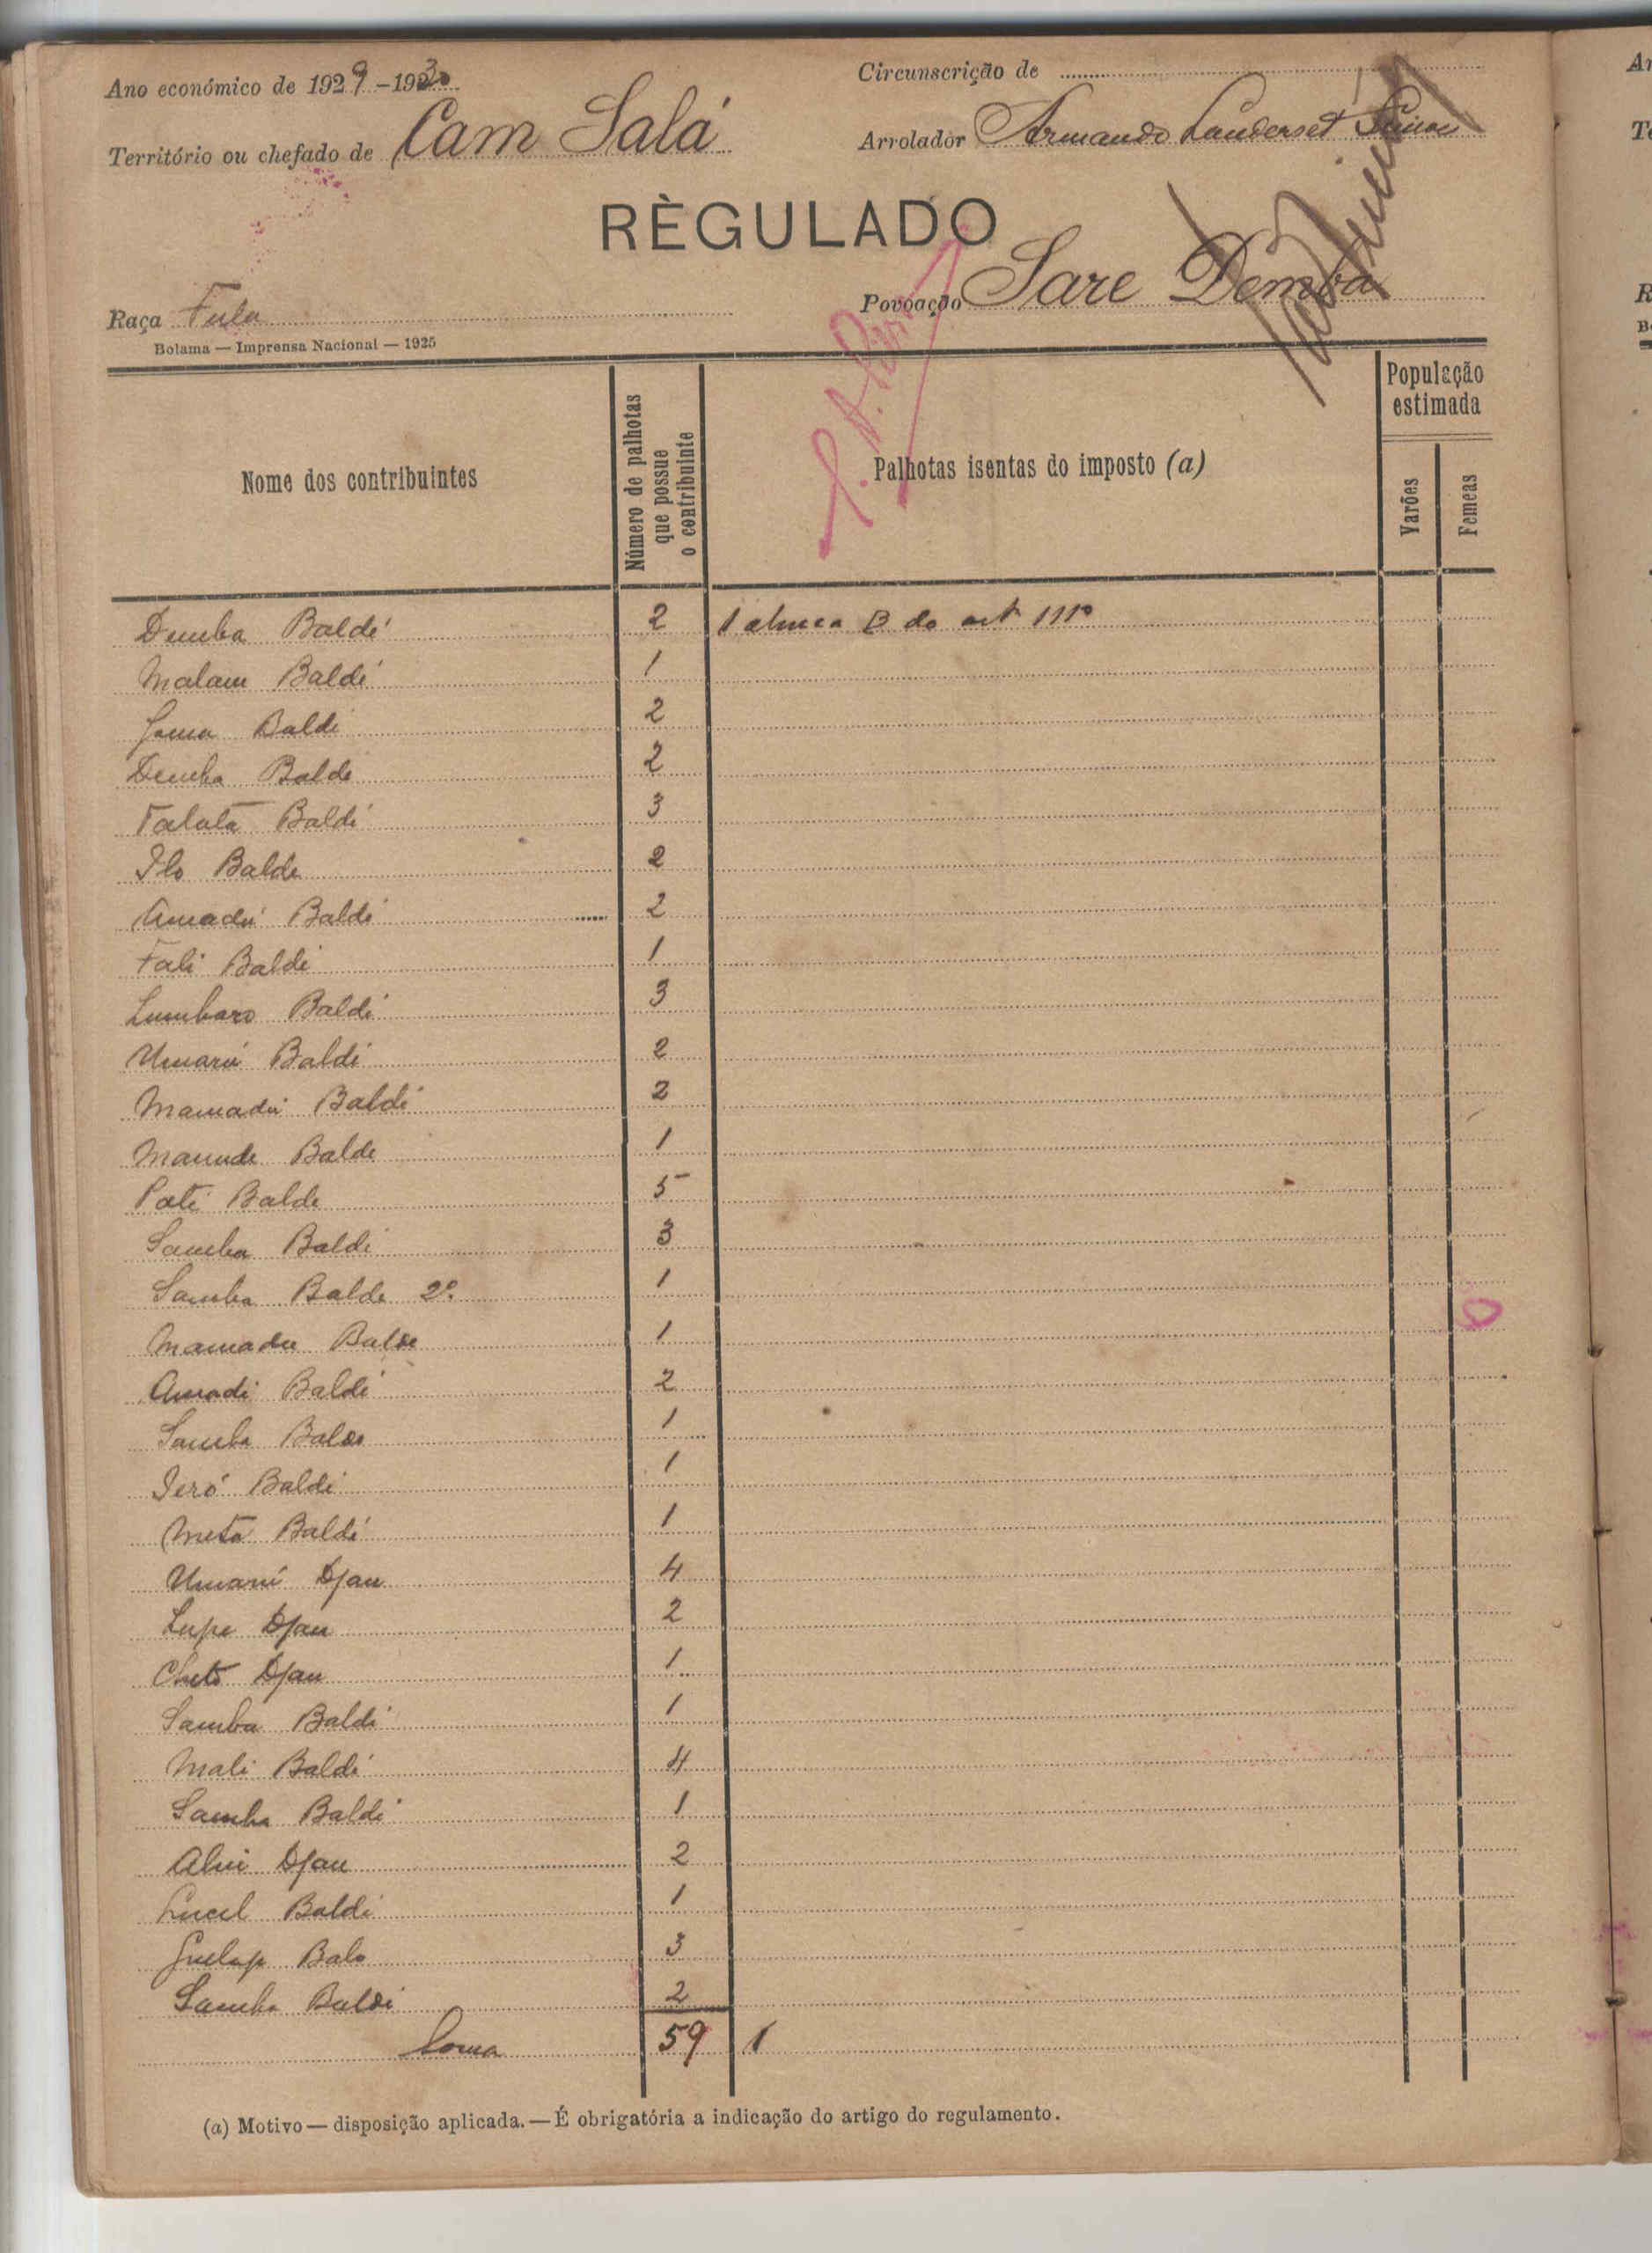 Ano económico de 1929-1930
Circunscrição de
Território ou chefado de Cam Salá
Arrolador Armando Landerset Simões
RÈGULADO
Raça Fula
Povoação Sare Demba
Bolama — Imprensa Nacional — 1925
Nome dos contribuintes
Número de palhotas que possue o contribuinte
Palhotas isentas do imposto (a)
População estimada
Varões
Femeas
Demba Baldé 2 1 alinea B do art 111º
Malam Baldé 1
Baldé 2
Demba Balde 2
Talata Baldé 3
Ilo Balde 2
Amadú Baldé 2
Fali Baldé 1
Lumbaro Baldé 3
Umarú Baldé 2
Mamadú Baldé 2
Balde 1
Pati Balde 5
Samba Baldé 3
Samba Balde 2º 1
Mamadu Balde 1
Amadi Baldé 2
Samba Balde 1
Ieró Baldé 1
Meta Baldé 1
Umarú Djau 4
Lupe Djau 2
Djau 1
Samba Baldé 1
Mali Baldé 4
Samba Baldé 1
Djau 2
Baldé 1
3
Samba Baldé 2
Soma 59 1
(a) Motivo — disposição aplicada. — É obrigatória a indicação do artigo do regulamento.